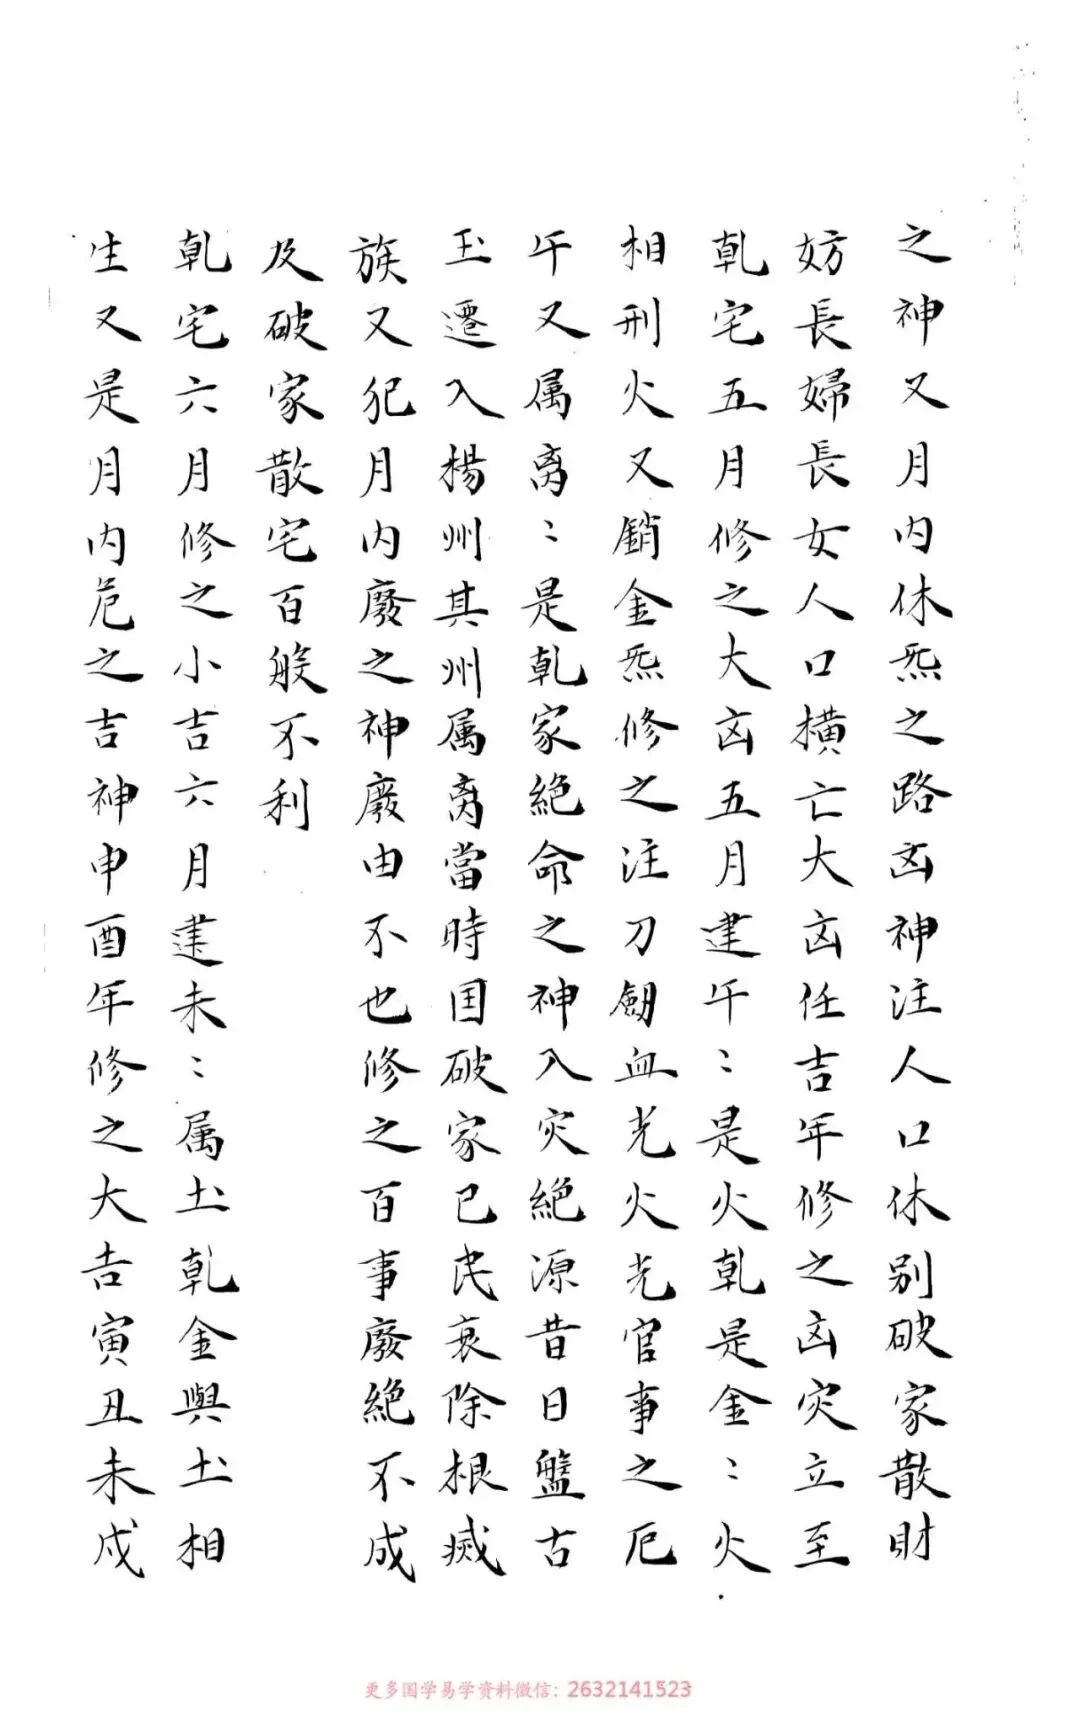 之神又月内休炁之路凶神注人口休别破家散財
妨長婦長女人口橫亡大凶任吉年修之凶灾立至
乹宅五月修之大凶五月建午〻是火乹是金〻火
相刑火又銷金炁修之注刀劒血光火光官事之厄
午又属离〻是乹家絶命之神入灾絶源昔日盤古
玉遷入楊州其州属离當時国破家已民衰除根滅
族又犯月内廢之神廢由不也修之百事廢絶不成
及破家散宅百般不利
乹宅六月修之小吉六月建未〻属土乹金與土相
生又是月内危之吉神申酉年修之大吉寅丑未戍
更多国学易学资料微信：2632141523